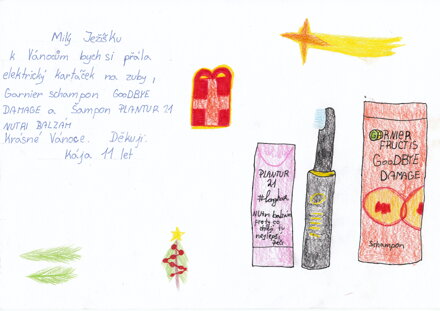 Milý Ježíšku
k Vánocům bych si přála
elektrický kartáček na zuby,
Garnier schampon GOODBYE
DAMAGE a Šampon PLANTUR 21
NUTRI BALZÁM
Krásné Vánoce. Děkuji.
Kája 11 let
PLANTUR
21
#longhair
GARNIER
FRUCTIS
GOODBYE
DAMAGE
Schampon